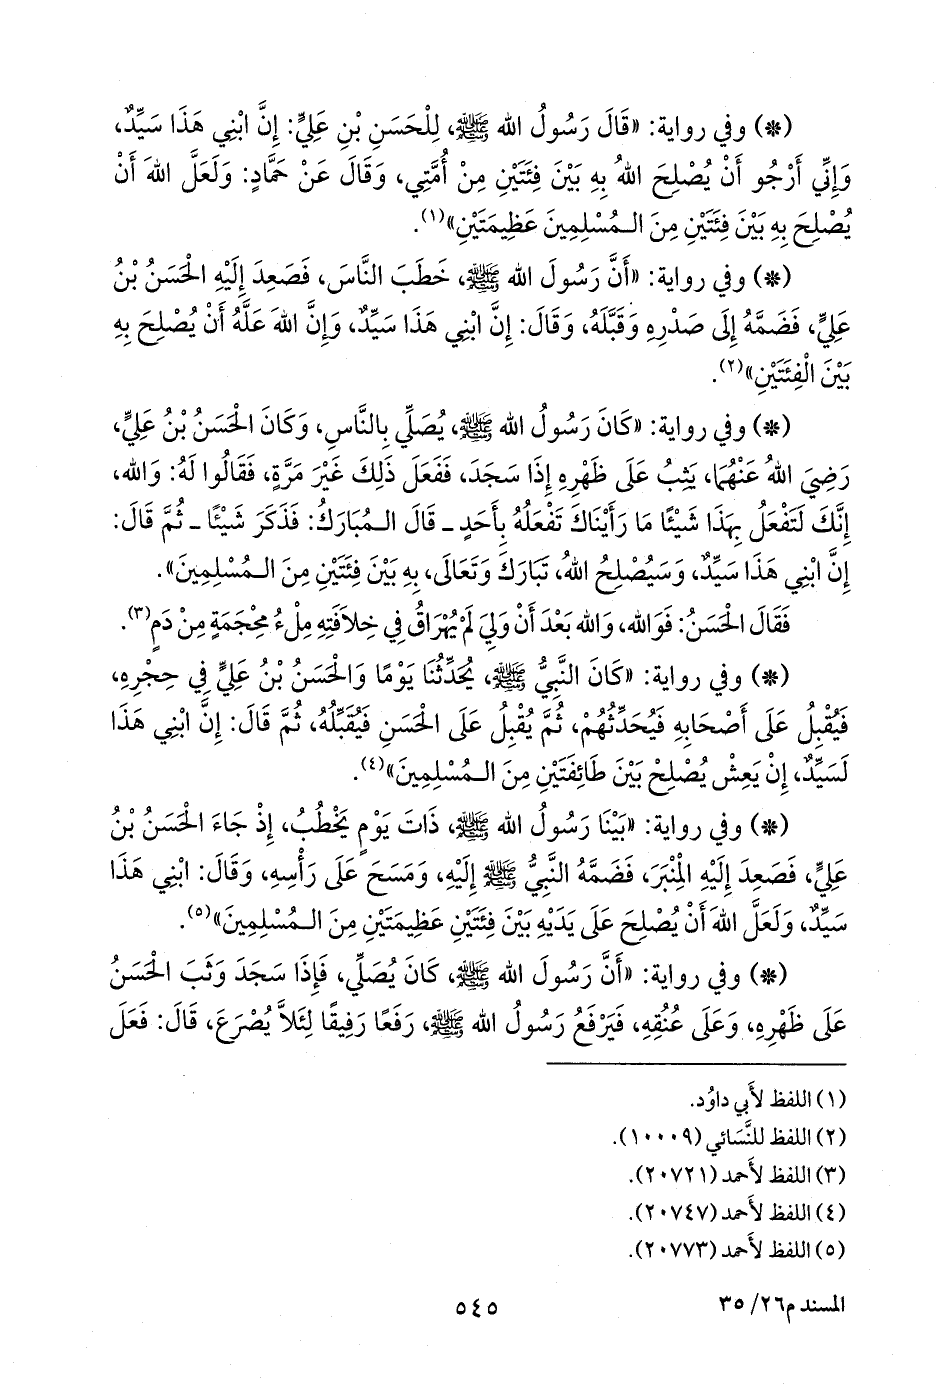 (*) وفي رواية: «قَالَ رَسُولُ الله ﷺ، لِلْحَسَنِ بْنِ عَلِيٍّ: إِنَّ ابْنِي هَذَا سَيِّدٌ،
وَإِنِّي أَرْجُو أَنْ يُصْلِحَ اللهُ بِهِ بَيْنَ فِئَتَيْنِ مِنْ أُمَّتِي، وَقَالَ عَنْ حَمَّادٍ: وَلَعَلَّ اللهَ أَنْ
يُصْلِحَ بِهِ بَيْنَ فِئَتَيْنِ مِنَ الـمُسْلِمِينَ عَظِيمَتَيْنِ»(١).
(*) وفي رواية: «أَنَّ رَسُولَ الله ﷺ، خَطَبَ النَّاسَ، فَصَعِدَ إِلَيْهِ الْحَسَنُ بْنُ
عَلِيٍّ، فَضَمَّهُ إِلَى صَدْرِهِ وَقَبَّلَهُ، وَقَالَ: إِنَّ ابْنِي هَذَا سَيِّدٌ، وَإِنَّ اللهَ عَلَّهُ أَنْ يُصْلِحَ بِهِ
بَيْنَ الْفِئَتَيْنِ»(٢).
(*) وفي رواية: «كَانَ رَسُولُ الله ﷺ، يُصَلِّي بِالنَّاسِ، وَكَانَ الْحَسَنُ بْنُ عَلِيٍّ،
رَضِيَ اللهُ عَنْهُمَا، يَثِبُ عَلَى ظَهْرِهِ إِذَا سَجَدَ، فَفَعَلَ ذَلِكَ غَيْرَ مَرَّةٍ، فَقَالُوا لَهُ: وَالله،
إِنَّكَ لَتَفْعَلُ بِهَذَا شَيْئًا مَا رَأَيْنَاكَ تَفْعَلُهُ بِأَحَدٍ ـ قَالَ الـمُبَارَكُ: فَذَكَرَ شَيْئًا ـ ثُمَّ قَالَ:
إِنَّ ابْنِي هَذَا سَيِّدٌ، وَسَيُصْلِحُ اللهُ، تَبَارَكَ وَتَعَالَى، بِهِ بَيْنَ فِئَتَيْنِ مِنَ الـمُسْلِمِينَ».
فَقَالَ الْحَسَنُ: فَوَالله، وَالله بَعْدَ أَنْ وَلِيَ لَمْ يُهْرَاقُ فِي خِلَافَتِهِ مِلْءُ مِحْجَمَةٍ مِنْ دَمٍ(٣).
(*) وفي رواية: «كَانَ النَّبِيُّ ﷺ، يُحَدِّثُنَا يَوْمًا وَالْحَسَنُ بْنُ عَلِيٍّ فِي حِجْرِهِ،
فَيُقْبِلُ عَلَى أَصْحَابِهِ فَيُحَدِّثُهُمْ، ثُمَّ يُقْبِلُ عَلَى الْحَسَنِ فَيُقَبِّلُهُ، ثُمَّ قَالَ: إِنَّ ابْنِي هَذَا
لَسَيِّدٌ، إِنْ يَعِشْ يُصْلِحْ بَيْنَ طَائِفَتَيْنِ مِنَ الـمُسْلِمِينَ»(٤).
(*) وفي رواية: «بَيْنَا رَسُولُ الله ﷺ، ذَاتَ يَوْمٍ يَخْطُبُ، إِذْ جَاءَ الْحَسَنُ بْنُ
عَلِيٍّ، فَصَعِدَ إِلَيْهِ الْمِنْبَرَ، فَضَمَّهُ النَّبِيُّ ﷺ إِلَيْهِ، وَمَسَحَ عَلَى رَأْسِهِ، وَقَالَ: ابْنِي هَذَا
سَيِّدٌ، وَلَعَلَّ اللهَ أَنْ يُصْلِحَ عَلَى يَدَيْهِ بَيْنَ فِئَتَيْنِ عَظِيمَتَيْنِ مِنَ الـمُسْلِمِينَ»(٥).
(*) وفي رواية: «أَنَّ رَسُولَ الله ﷺ، كَانَ يُصَلِّي، فَإِذَا سَجَدَ وَثَبَ الْحَسَنُ
عَلَى ظَهْرِهِ، وَعَلَى عُنُقِهِ، فَيَرْفَعُ رَسُولُ الله ﷺ، رَفْعًا رَفِيقًا لِئَلاَّ يُصْرَعَ، قَالَ: فَعَلَ
(١) اللفظ لأَبي داوُد.
(٢) اللفظ للنَّسَائي (١٠٠٠٩).
(٣) اللفظ لأَحمد (٢٠٧٢١).
(٤) اللفظ لأَحمد (٢٠٧٤٧).
(٥) اللفظ لأَحمد (٢٠٧٧٣).
المسند م٢٦/ ٣٥
٥٤٥